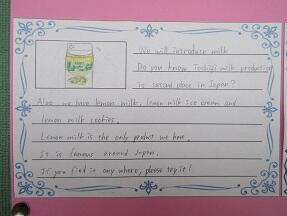 We will introduce milk
Do you know Tochigi milk production
is second place in Japan?
Also, we have lemon milk, lemon milk ice cream and
lemon milk cookies.
Lemon milk is the only product we have.
It is famous around Japan.
If you find it any where, please try it!